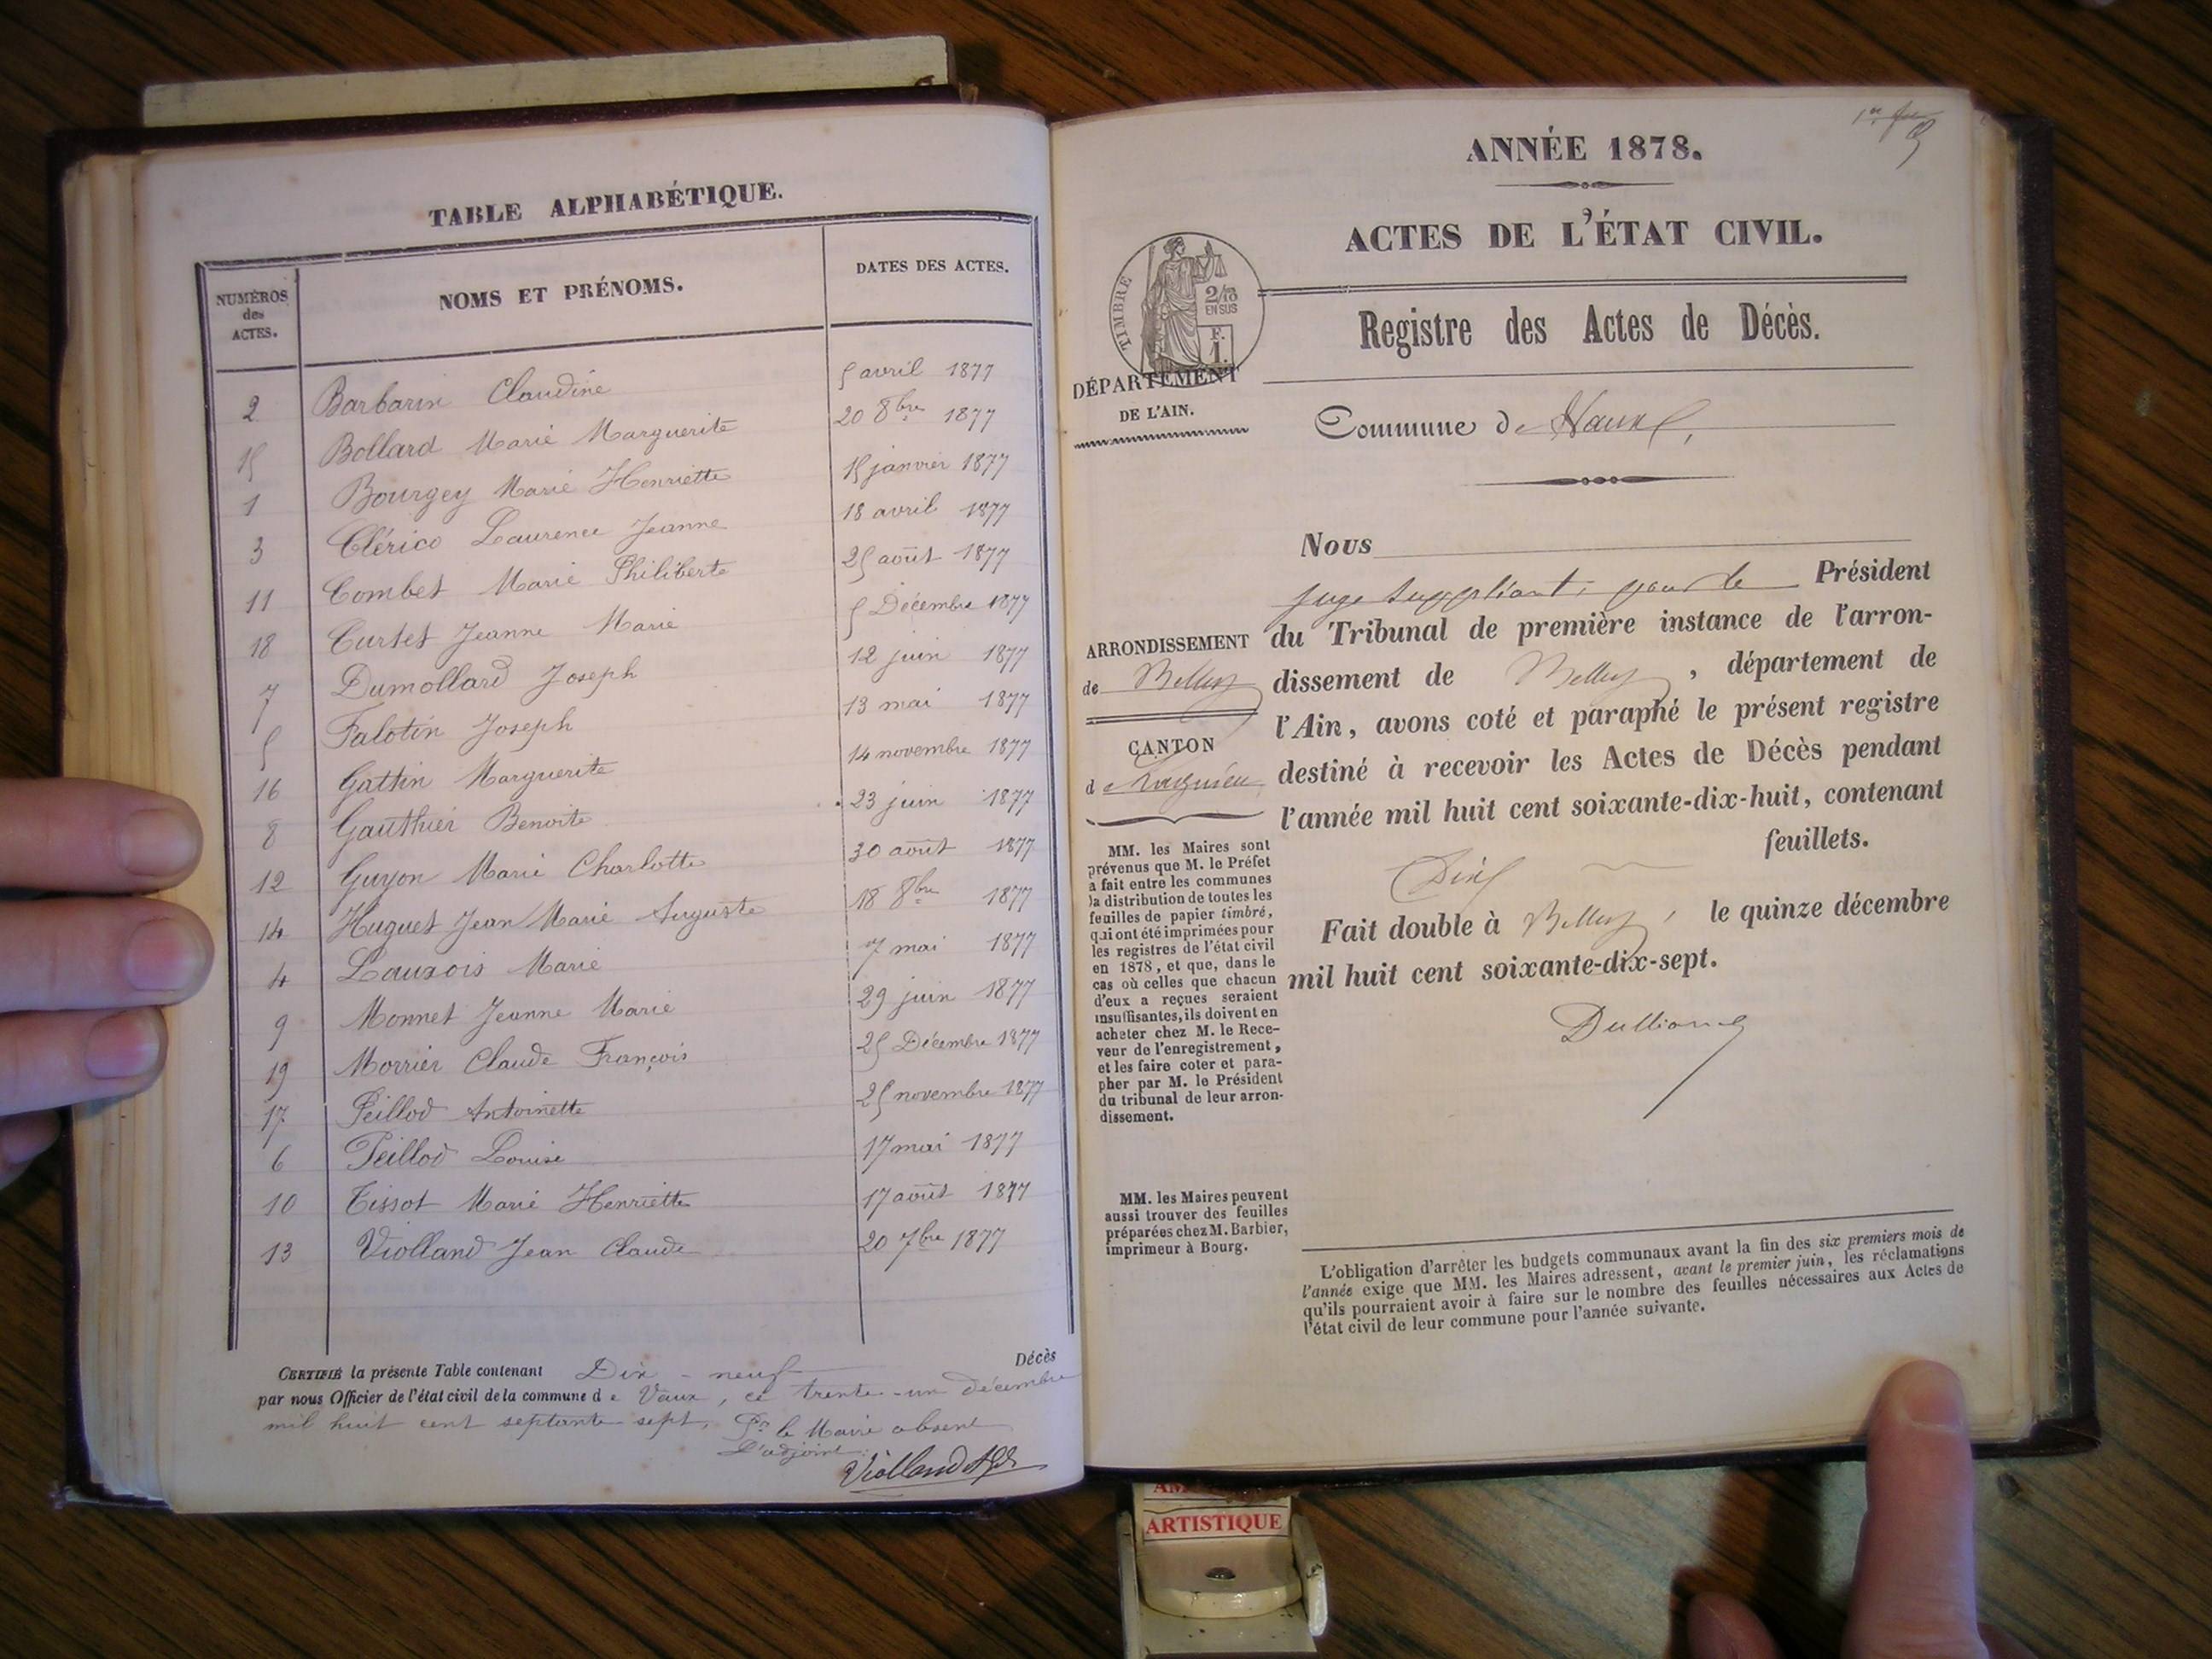 TABLE ALPHABÉTIQUE.
NUMÉROS des ACTES. NOMS ET PRÉNOMS. DATES DES ACTES.
2 Barbarin Claudine 5 avril 1877
15 Bollard Marie Marguerite 20 8bre 1877
1 Bourgey Marie Henriette 15 janvier 1877
3 Clérico Laurence Jeanne 18 avril 1877
11 Combet Marie Philiberte 25 août 1877
18 Curtet Jeanne Marie 5 Décembre 1877
7 Dumollard Joseph 12 juin 1877
5 Falotin Joseph 13 mai 1877
16 Gattin Marguerite 14 novembre 1877
8 Gauthier Benoite 23 juin 1877
12 Guyon Marie Charlotte 30 août 1877
14 Huguet Jean Marie Auguste 18 8bre 1877
4 Lauxois Marie 7 mai 1877
9 Monnet Jeanne Marie 29 juin 1877
19 Morrier Claude François 25 Décembre 1877
17 Peillod Antoinette 25 novembre 1877
6 Peillod Louise 17 mai 1877
10 Tissot Marie Henriette 17 août 1877
13 Violland Jean Claude 20 7bre 1877
CERTIFIÉ la présente Table contenant Dix-neuf Décès
par nous Officier de l'état civil de la commune de Vaux, ce trente-un décembre
mil huit cent septante sept. Pr le Maire absent
L'adjoint:
Violland
ANNÉE 1878.
ACTES DE L'ÉTAT CIVIL.
TIMBRE
2/10
EN SUS
F.
1.
Registre des Actes de Décès.
DÉPARTEMENT
DE L'AIN.
Commune de Vaux,
Nous
juge suppléant, pour le Président
du Tribunal de première instance de l'arron-
dissement de Belley, département de
l'Ain, avons coté et paraphé le présent registre
destiné à recevoir les Actes de Décès pendant
l'année mil huit cent soixante-dix-huit, contenant
Dix feuillets.
Fait double à Belley, le quinze décembre
mil huit cent soixante-dix-sept.
ARRONDISSEMENT
de Belley
CANTON
de Lagnieu
MM. les Maires sont
prévenus que M. le Préfet
a fait entre les communes
la distribution de toutes les
feuilles de papier timbré,
qui ont été imprimées pour
les registres de l'état civil
en 1878, et que, dans le
cas où celles que chacun
d'eux a reçues seraient
insuffisantes, ils doivent en
acheter chez M. le Rece-
veur de l'enregistrement,
et les faire coter et para-
pher par M. le Président
du tribunal de leur arron-
dissement.
MM. les Maires peuvent
aussi trouver des feuilles
préparées chez M. Barbier,
imprimeur à Bourg.
L'obligation d'arrêter les budgets communaux avant la fin des six premiers mois de
l'année exige que MM. les Maires adressent, avant le premier juin, les réclamations
qu'ils pourraient avoir à faire sur le nombre des feuilles nécessaires aux Actes de
l'état civil de leur commune pour l'année suivante.
ARTISTIQUE